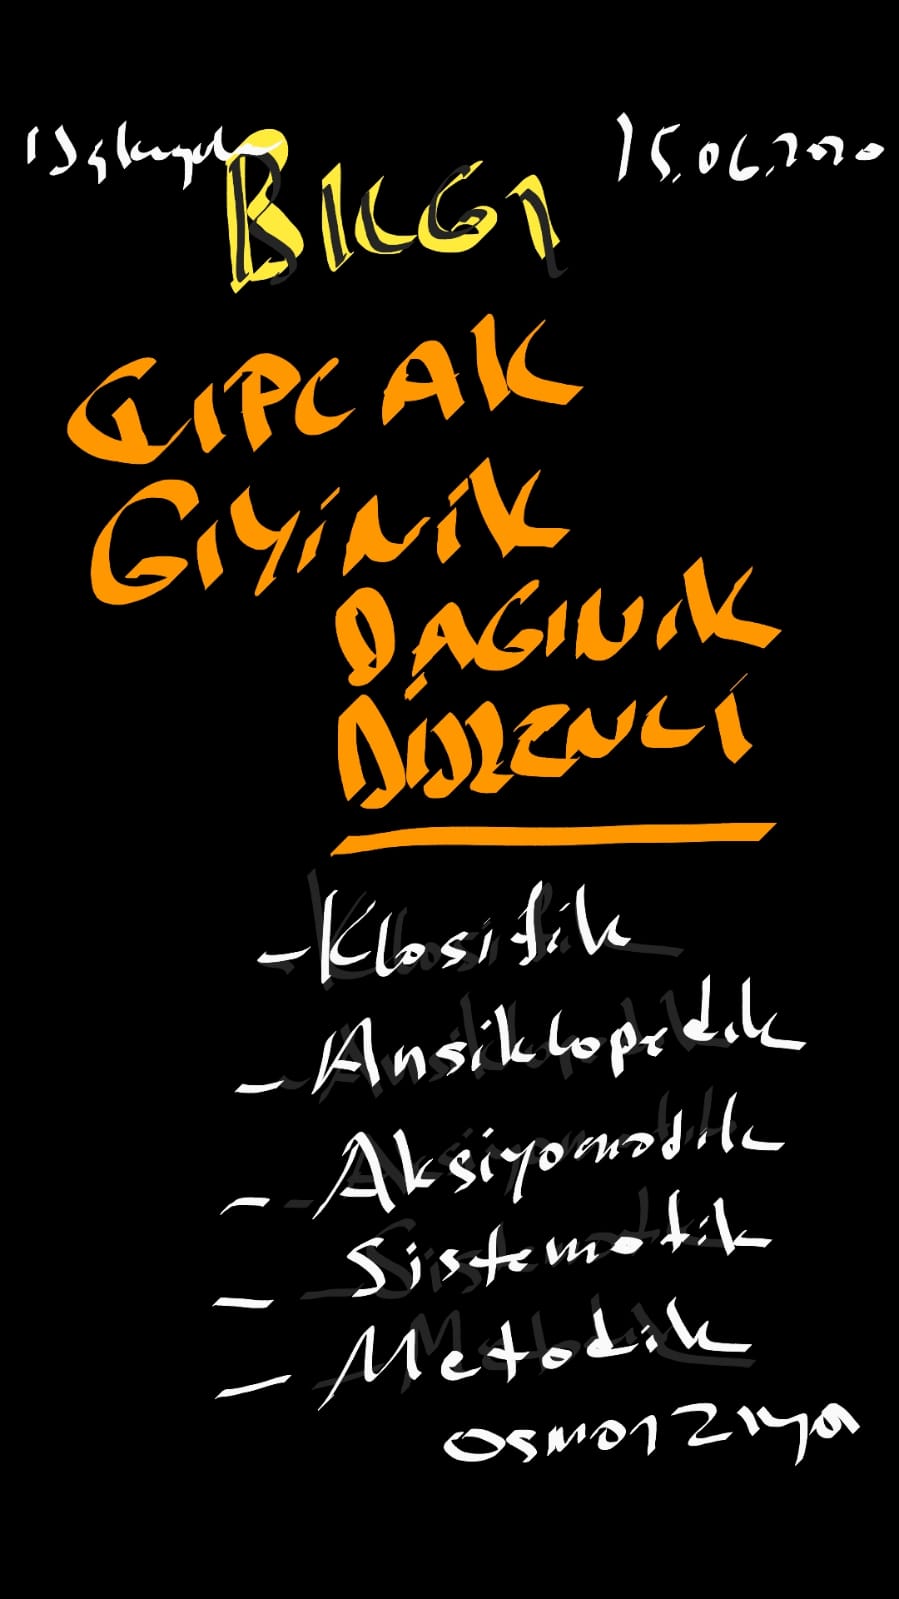 15.06.2020
BILGI
GIPCAK
GIYiNiK
DAGINIK
DÜZENLİ
- Klasifik
- Ansiklopedik
- Aksiyomatik
- Sistematik
- Metodik
osman Ziya